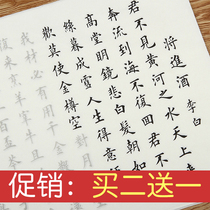 將進酒 李白
君不見黄河之水天上
奔流到海不復回君不
高堂明鏡悲白髮朝如
絲暮成雪人生得意
歡莫使金樽空
我材必有用
促销：买二送一